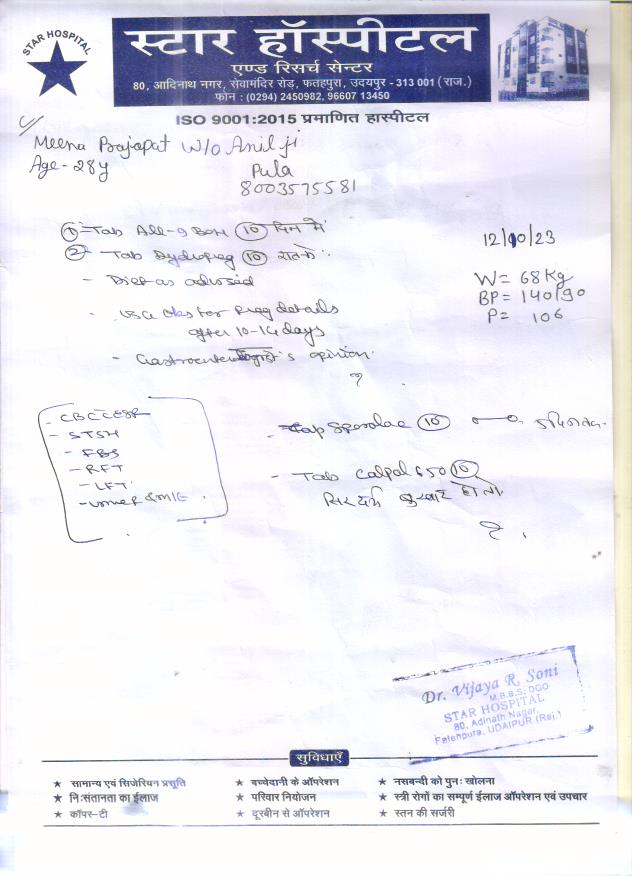 STAR HOSPITAL
स्टार हॉस्पीटल
एण्ड रिसर्च सेन्टर
80, आदिनाथ नगर, सेवामंदिर रोड़, फतहपुरा, उदयपुर - 313 001 (राज.)
फोन : (0294) 2450982, 96607 13450
ISO 9001:2015 प्रमाणित हास्पीटल
Meena Prajapat W/o Anil ji
Age - 28y
Pula
8003575581
12/10/23
W = 68 Kg
BP = 140/90
P = 106
① Tab All-9 (10) दिन में
② Tab Dydropreg (10) रात को
- Diet as advised
- USG Obs for Preg details
after 10-14 days
- Gastroenterologist's opinion
- CBC ESR
- STSH
- FBS
- RFT
- LFT
- Urine
- Cap (10)
- Tab Calpol 650 (10)
सिर दर्द बुखार हो तो
Dr. Vijaya R. Soni
M.B.B.S; DGO
STAR HOSPITAL
80, Adinath Nagar,
Fatehpura, UDAIPUR (Raj.)
सुविधाएँ
★ सामान्य एवं सिजेरियन प्रसूति ★ बच्चेदानी के ऑपरेशन ★ नसबन्दी को पुनः खोलना
★ निःसंतानता का ईलाज ★ परिवार नियोजन ★ स्त्री रोगों का सम्पूर्ण ईलाज ऑपरेशन एवं उपचार
★ कॉपर-टी ★ दूरबीन से ऑपरेशन ★ स्तन की सर्जरी